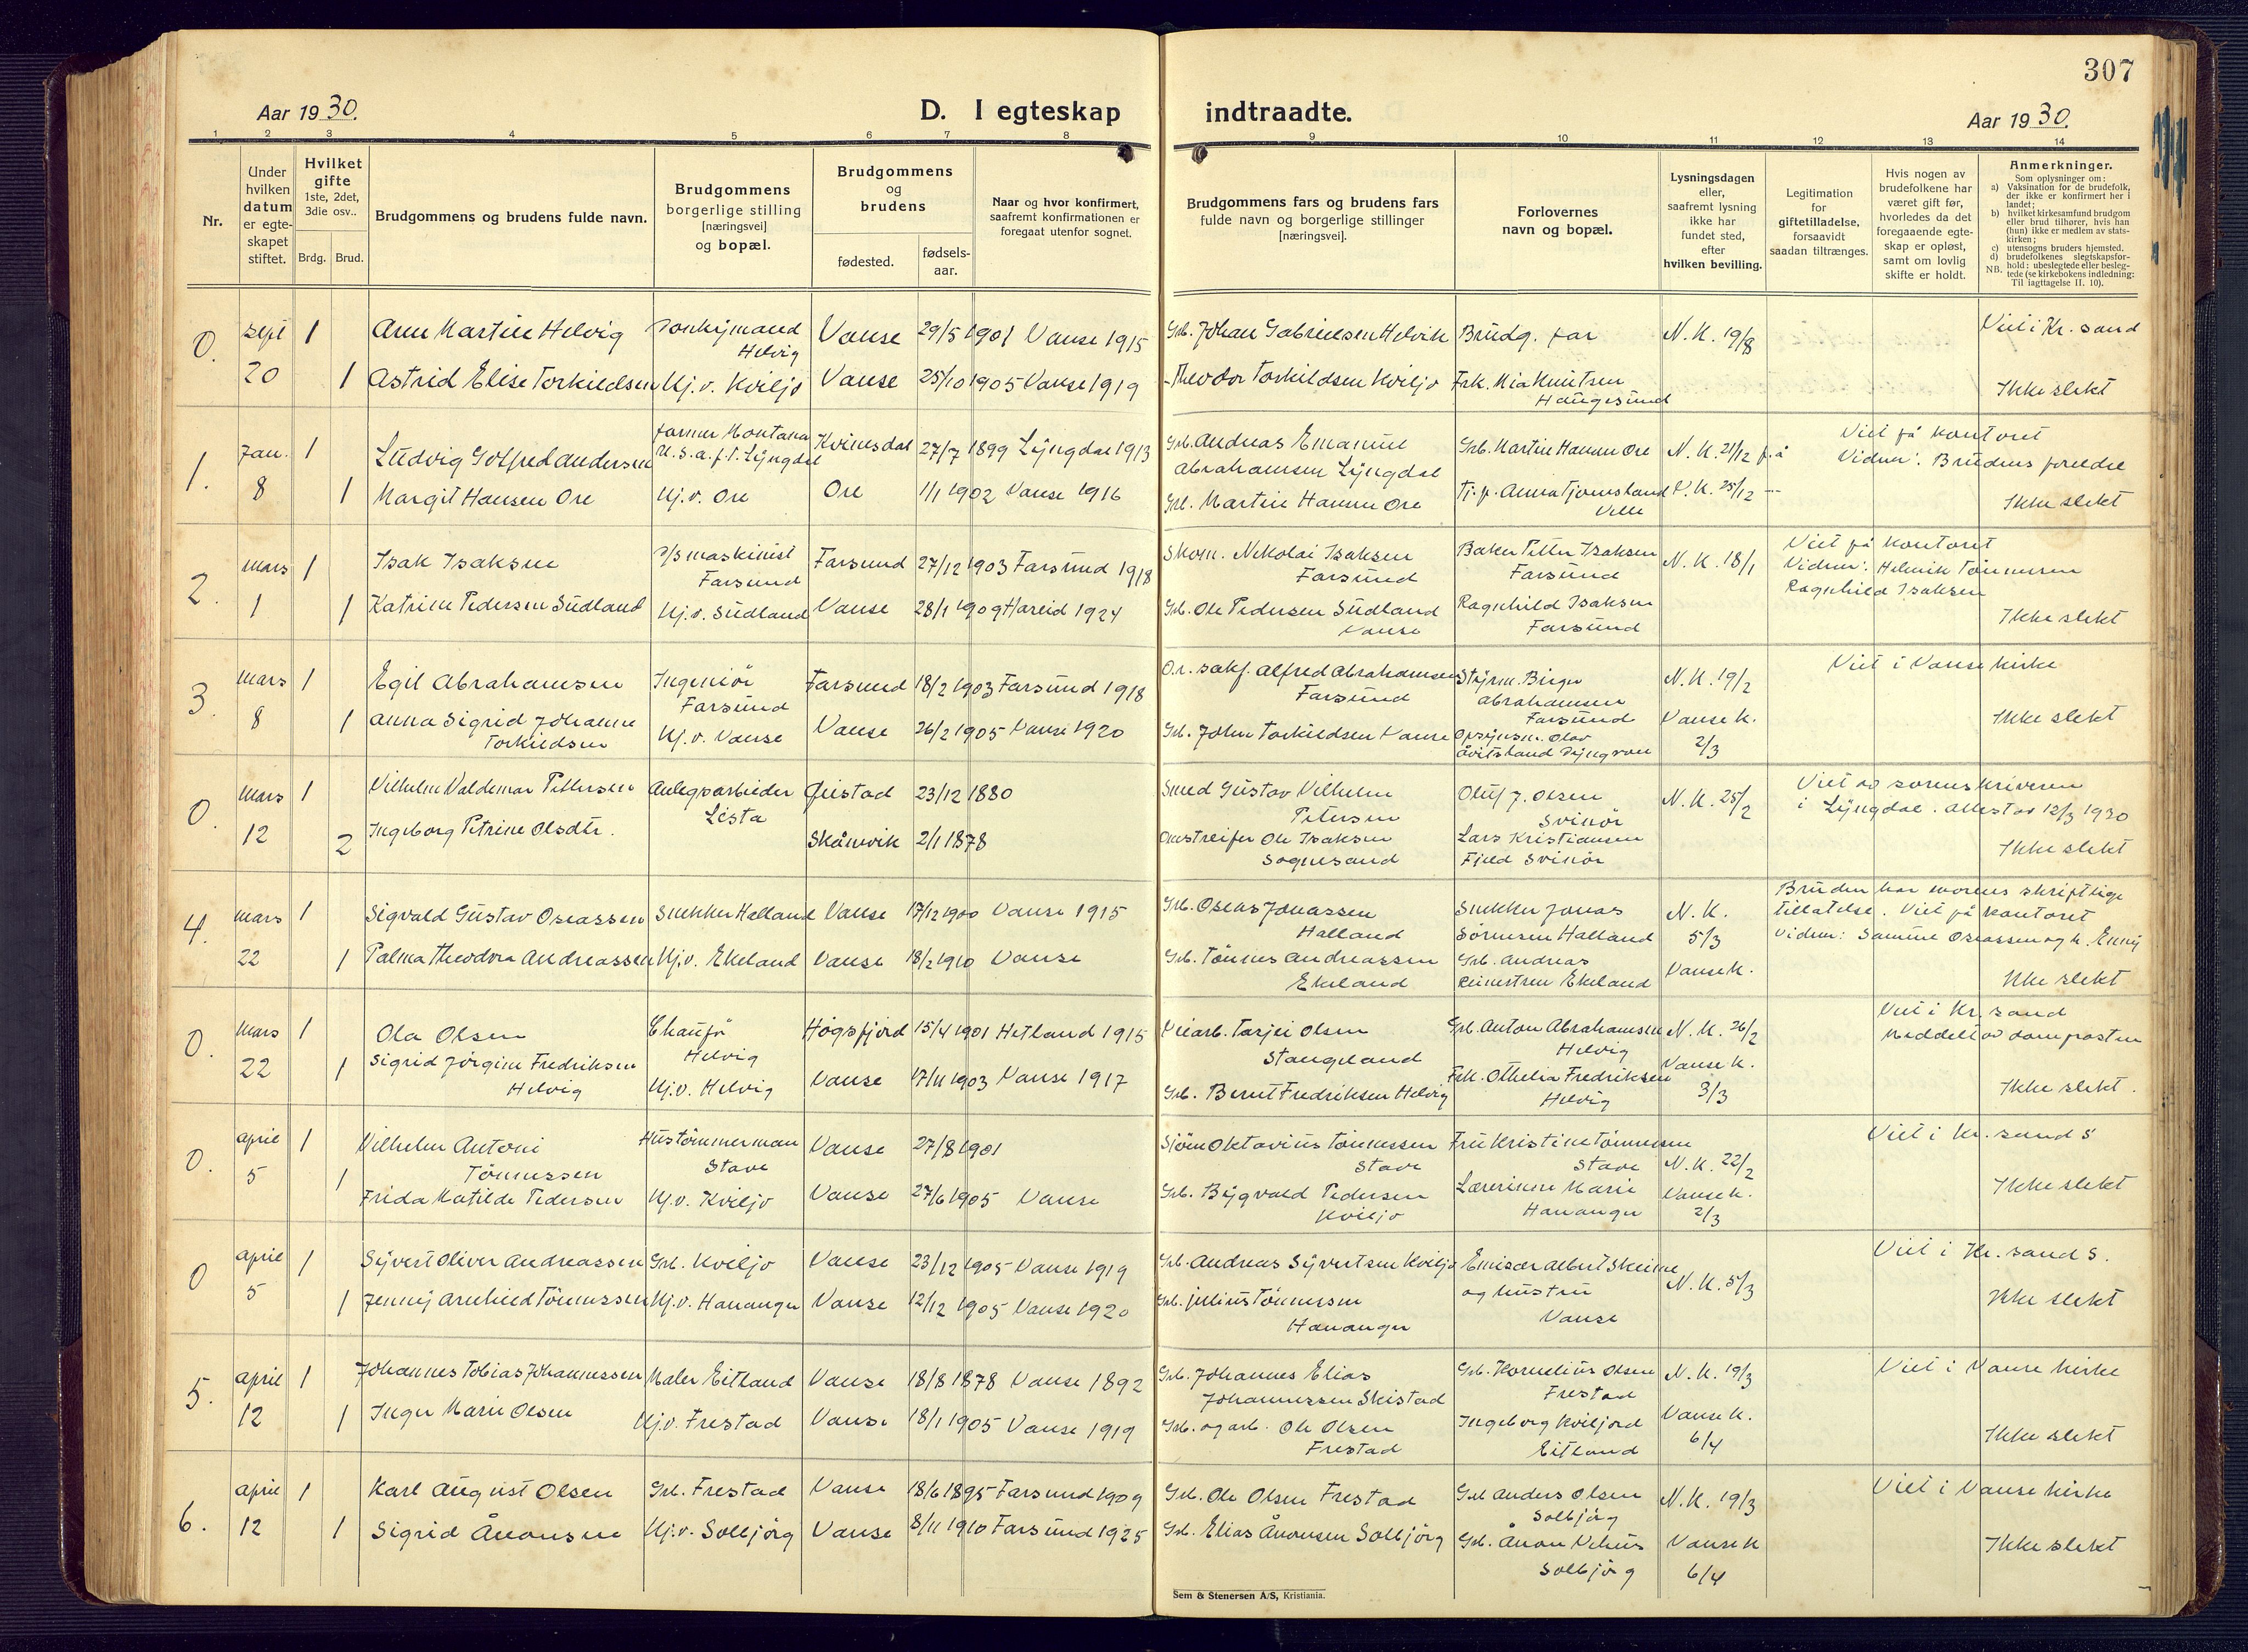 307
Aar 1930.
D. I egteskap indtraadte.
Aar 1930.
1 2 3 4 5 6 7 8 9 10 11 12 13 14
Nr.
Under hvilken datum er egteskapet stiftet.
Hvilket gifte 1ste, 2det, 3die osv..
Brdg. Brud.
Brudgommens og brudens fulde navn.
Brudgommens borgerlige stilling [næringsvei] og bopæl.
Brudgommens og brudens
fødested.
fødsels-aar.
Naar og hvor konfirmert, saafremt konfirmationen er foregaat utenfor sognet.
Brudgommens fars og brudens fars fulde navn og borgerlige stillinger [næringsvei].
Forlovernes navn og bopæl.
Lysningsdagen eller, saafremt lysning ikke har fundet sted, efter hvilken bevilling.
Legitimation for giftetilladelse, forsaavidt saadan tiltrænges.
Hvis nogen av brudefolkene har været gift før, hvorledes da det foregaaende egteskap er opløst, samt om lovlig skifte er holdt.
Anmerkninger.
Som oplysninger om:
a) Vaksination for de brudefolk, der ikke er konfirmert her i landet;
b) hvilket kirkesamfund brudgom eller brud tilhører, hvis han (hun) ikke er medlem av statskirken;
c) utensogns bruders hjemsted.
d) brudefolkenes slegtskapsforhold: ubeslegtede eller beslegtede (se kirkebokens indledning:
NB. Til iagttagelse II. 10).
0. Sept 1 Arnt Martin Helvig Helvig Vanse 29/5 1901 Vanse 1915 Grb. Johan Gabrielsen Helvik Brudg. far N.K. 19/8 Viet i Kr. sand
20 1 Astrid Elise Torkildsen Uj.v. Kviljo Vanse 25/10 1905 Vanse 1919 Theodor Torkildsen Kviljo Frk. Mia Knutsen Haugesund Ikke slekt
1. Jan. 1 Ludvig Gotfred Andersen farmer Montana U.S.a. f.t. Lyngdal Kvinesdal 27/7 1899 Lyngdal 1913 Grb. Andreas Emanuel Abrahamsen Lyngdal Grb. Martin Hansen Ore N.K. 21/12 Viet på kontoret
Vidner: Brudens foreldre
8 1 Margit Hansen Ore Uj.v. Ore Ore 1/1 1902 Vanse 1916 Grb. Martin Hansen Ore Tj.p. Anna Tjomsland V.K. 25/12 Ikke slekt
2. Mars 1 Isak Isaksen D/S maskinist Farsund Farsund 27/12 1903 Farsund 1918 Skom. Nikolai Isaksen Farsund Baker Petter Isaksen Farsund N.K. 18/1 Viet på kontoret
Vidner: Helmik Tønnesen
Ragnhild Isaksen
1 1 Katrine Pedersen Sudland Uj.v. Sudland Vanse 28/1 1909 Hareid 1924 Grb. Ole Pedersen Sudland Vanse Ragnhild Isaksen Farsund Ikke slekt
3. Mars 1 Egil Abrahamsen Ingeniør Farsund Farsund 18/2 1903 Farsund 1918 O.r. sakf. Alfred Abrahamsen Farsund Styrm. Birger Abrahamsen Farsund N.K. 19/2 Viet i Vanse kirke
8 1 Anna Sigrid Johanne Torkildsen Uj.v. Vanse Vanse 26/2 1905 Vanse 1920 Grb. John Torkildsen Vanse Opsynsm. Olav Vanse K. 2/3 Ikke slekt
0. Mars 1 Vilhelm Valdemar Pettersen Anlegsarbeider Lista 23/12 1880 Smed Gustav Vilhelm Petersen Oluf J. Olsen Svinör N.K. 25/2 Viet av sorenskriveren
i Lyngdal. Attest av 12/3 1930
12 2 Ingeborg Petrine Olsdtr. Skånevik 2/1 1878 Omstreifer Ole Isaksen Sognesand Lars Kristiansen Fjeld Svinör Ikke slekt
4. Mars 1 Sigvald Gustav Oseassen Snekker Halland Vanse 17/12 1900 Vanse 1915 Grb. Oseas Jonassen Halland Snekker Jonas Sørensen Halland N.K. 5/3 Bruden har morens skriftlige
tillatelse. Viet på kontoret
Vidner: Samuel Oseassen og h. Enny
22 1 Palma Theodora Andreassen Uj.v. Ekeland Vanse 18/2 1910 Vanse Grb. Tönnes Andreassen Ekeland Grb. Andreas Ekeland Vanse K. Ikke slekt
0. Mars 1 Ola Olsen Chaufør Helvig Högsfjord 15/4 1901 Hetland 1915 Veiarb. Tarjei Olsen Stangeland Grb. Anton Abrahamsen Helvig N.K. 26/2 Viet i Kr. sand
Meddelt av domprosten
22 1 Sigrid Jörgine Fredriksen Helvig Uj.v. Helvig Vanse 17/11 1903 Vanse 1917 Grb. Bernt Fredriksen Helvig Frk. Othelia Fredriksen Helvig Vanse K. 3/3 Ikke slekt.
0. April 1 Vilhelm Antoni Tönnessen Hustömmerman Stave Vanse 27/8 1901 Sjöm Oktavius Tönnessen Stave Fru Kristine Tönnesen Stave N.K. 22/2 Viet i Kr. sand S
5 1 Frida Matilde Pedersen Uj.v. Kviljo Vanse 27/6 1905 Vanse Grb. Bygvald Pedersen Kviljo Lærerinne Marie Hananger Vanse K. 2/3 Ikke slekt
0 April 1 Syvert Oliver Andreassen Grb. Kviljo Vanse 23/12 1905 Vanse 1919 Grb. Andreas Syvertsen Kviljo Emisær Albert Skeime og hustru Vanse N.K. 5/3 Viet i Kr. sand S.
5 1 Jenny Arnhild Tönnessen Uj.v. Hananger Vanse 12/12 1905 Vanse 1920 Grb. Julius Tönnessen Hananger Ikke slekt
5. April 1 Johannes Tobias Johannessen Maler Eitland Vanse 18/8 1878 Vanse 1892 Grb. Johannes Elias Johannessen Skistad Grb. Kornelius Olsen Frestad N.K. 19/3 Viet i Vanse kirke
12 1 Inger Marie Olsen Uj.v. Frestad Vanse 18/1 1905 Vanse 1919 Grb. og arb. Ole Olsen Frestad Ingeborg Kviljord Eitland Vanse K. 6/4 Ikke slekt
6. April 1 Karl August Olsen Grb. Frestad Vanse 18/6 1895 Farsund 1909 Grb. Ole Olsen Frestad Grb Anders Olsen Solbjörg N.K. 19/3 Viet i Vanse kirke
12 1 Sigrid Ånonsen Uj.v. Solbjörg Vanse 8/11 1910 Farsund 1925 Grb. Elias Ånonsen Solbjörg Grb. Ånon Solbjörg Vanse K 6/4 Ikke slekt
Sem & Stenersen A/S, Kristiania.